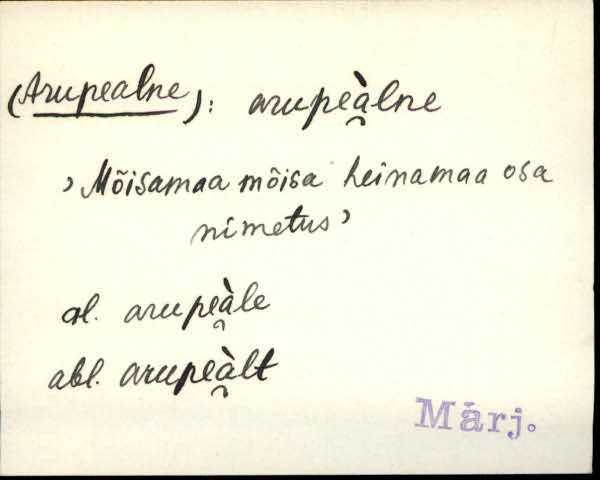 (Arupealne): arupeà̯lne
’Mõisamaa mõisa heinamaa osa
nimetus’
al. arupeà̯le
abl. arupeà̯lt
Märj.